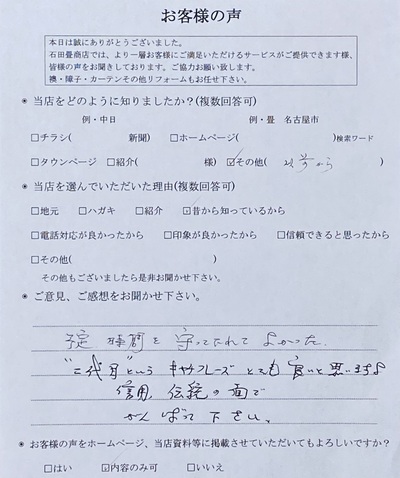 お客様の声
本日は誠にありがとうございました。
石田畳商店では、より一層お客様にご満足いただけるサービスがご提供できます様、
皆様の声をお聞きしております。ご協力お願い致します。
襖・障子・カーテンその他リフォームもお任せ下さい。
◉ 当店をどのように知りましたか？(複数回答可)
例・中日 例・畳 名古屋市
□チラシ( 新聞) □ホームページ( )検索ワード
□タウンページ □紹介( 様) ☑その他( 以前から )
◉ 当店を選んでいただいた理由(複数回答可)
□地元 □ハガキ □紹介 ☑昔から知っているから
□電話対応が良かったから □印象が良かったから □信頼できると思ったから
□その他( )
その他もございましたら是非お聞かせ下さい。
◉ ご意見、ご感想をお聞かせ下さい。
予定時間を守ってくれて よかった.
"二代目"という キャッチフレーズ とても 良いと思いますよ
信用, 伝統の面で
がんばって下さい。
◉ お客様の声をホームページ、当店資料等に掲載させていただいてもよろしいですか？
□はい ☑内容のみ可 □いいえ